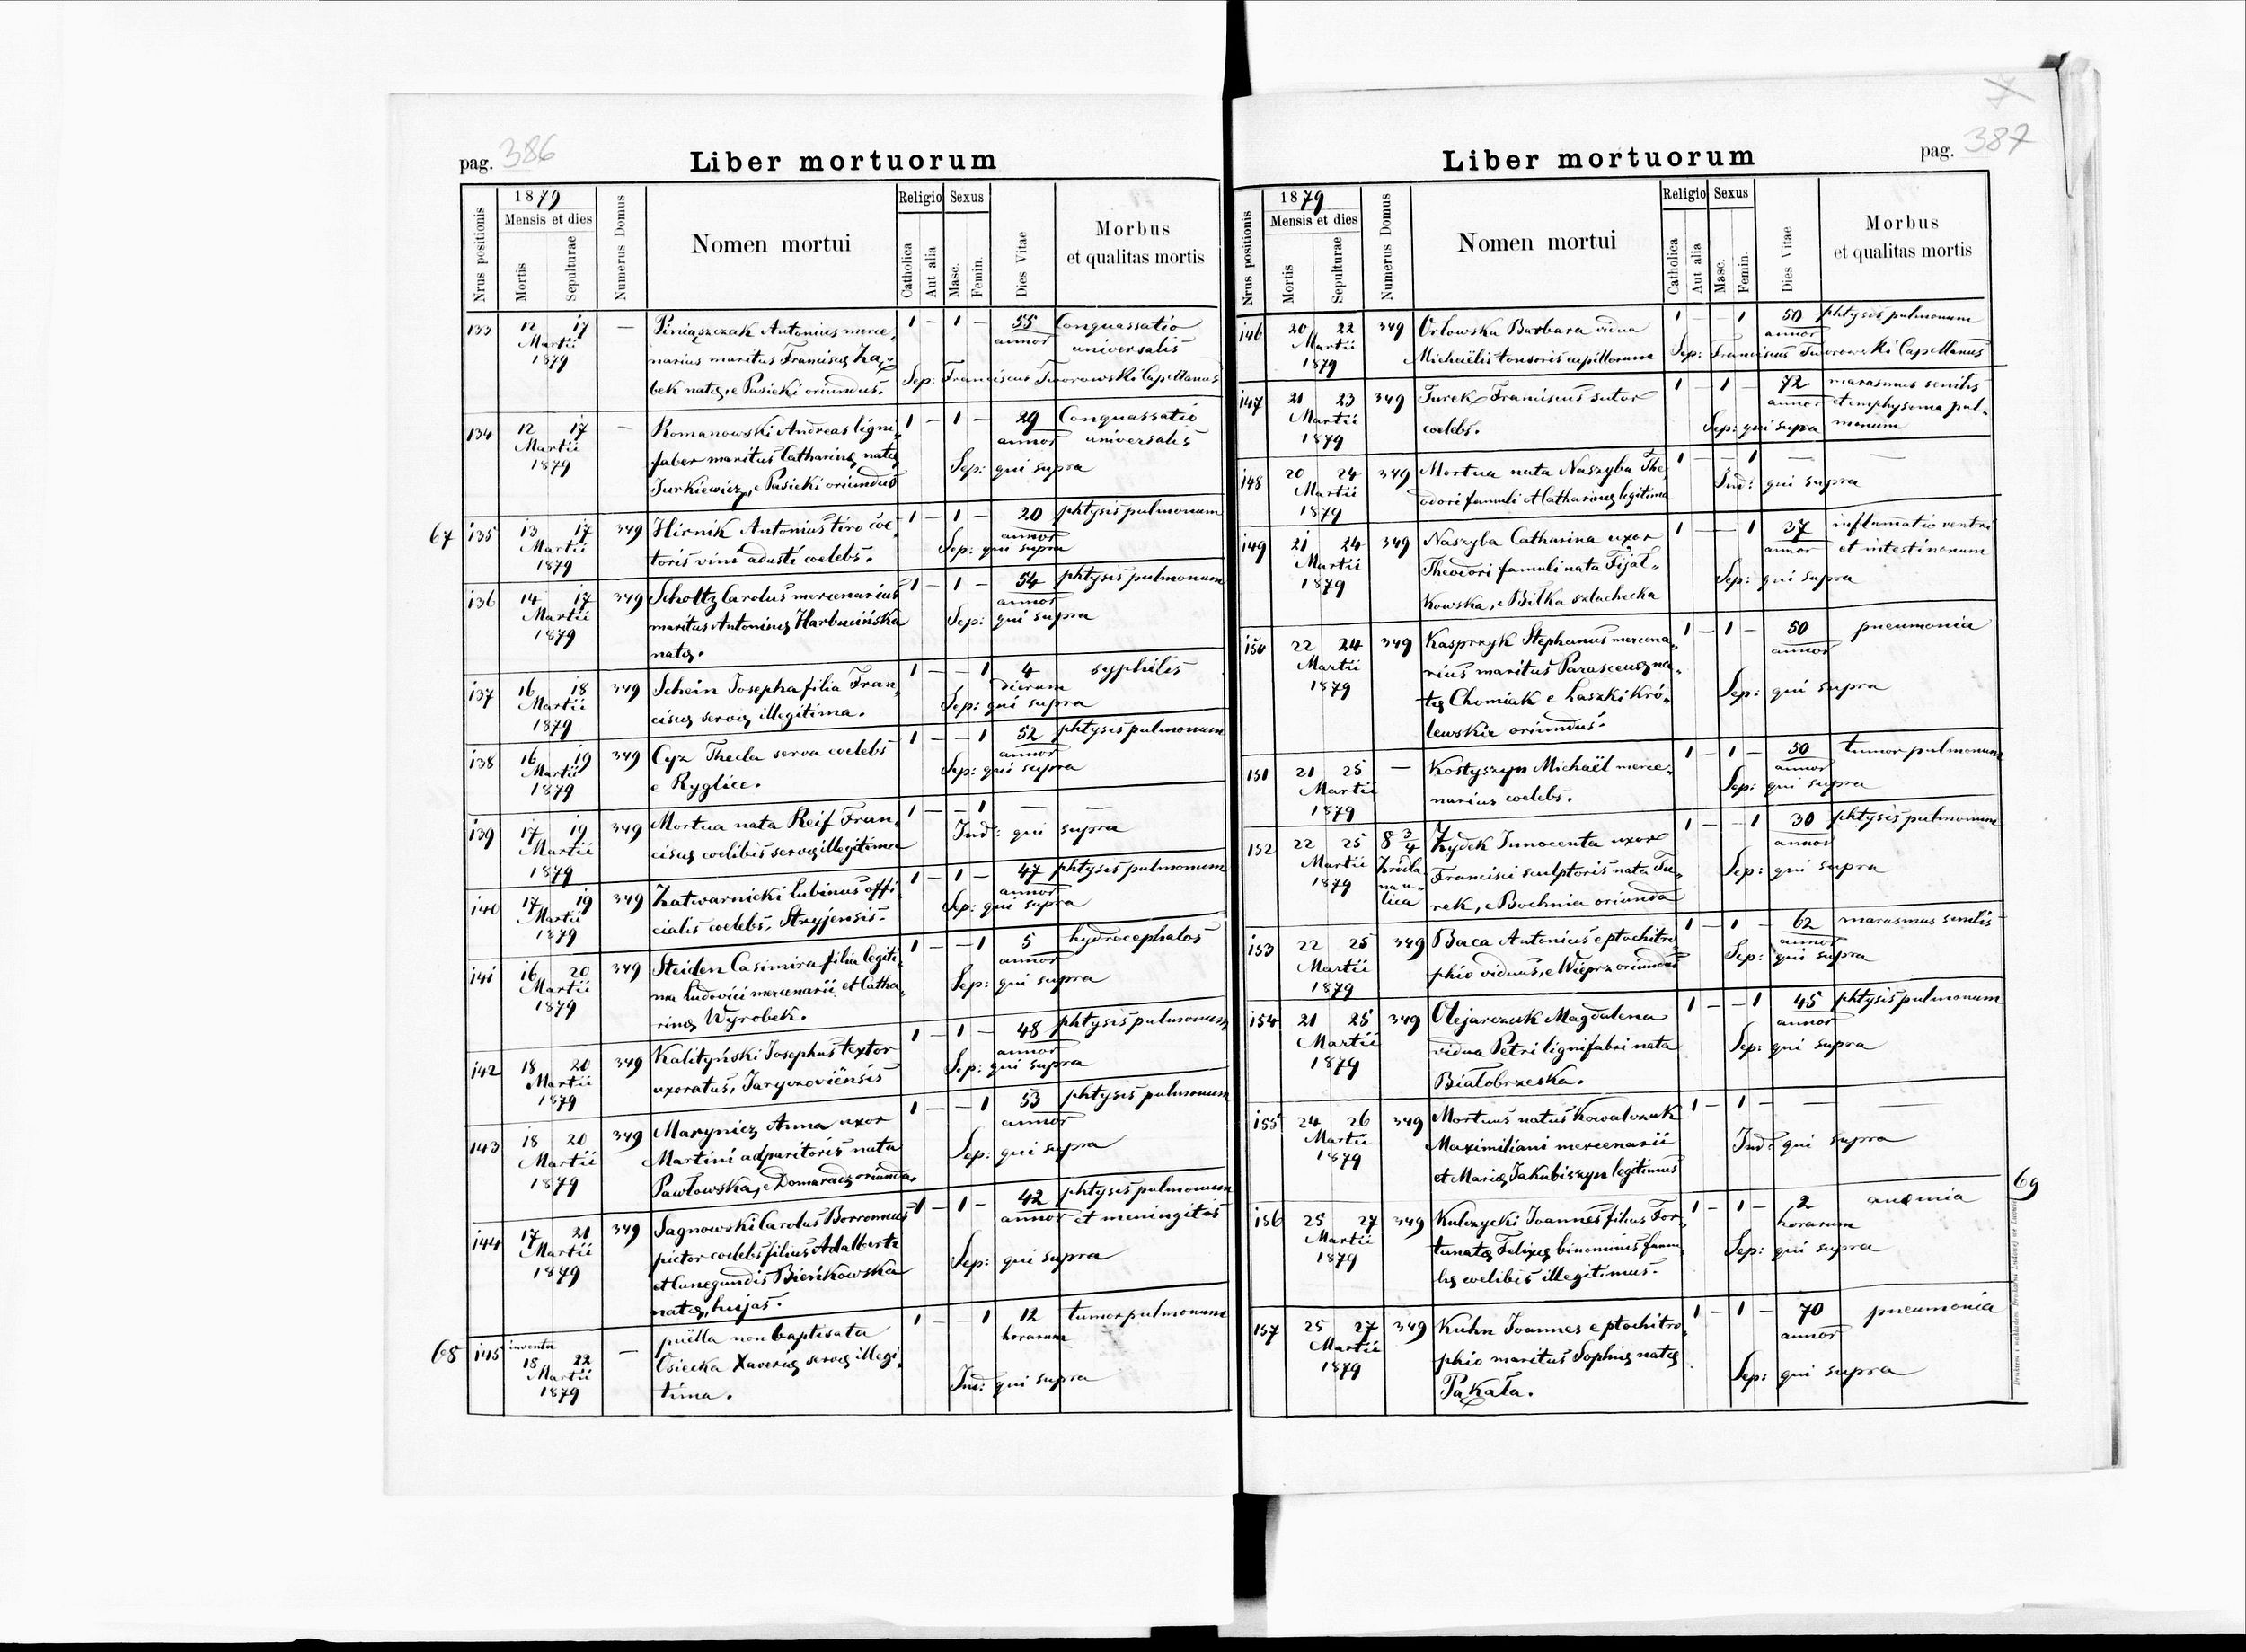 pag. 386
Liber mortuorum
Nrus positionis
1879
Mensis et dies
Mortis
Sepulturae
Numerus Domus
Nomen mortui
Religio
Catholica
Aut alia
Sexus
Masc.
Femin.
Dies Vitae
Morbus
et qualitas mortis
133 12 17 — Piniąszczak Antonius merce 1 — 1 — 55 Conquassatio
Martii narius maritus Franciscæ Za annor universalis
1879 bek natæ, e Pasieki oriundus. Sep: Franciscus Tworowski Capellanus
134 12 17 — Romanowski Andreas ligni 1 — 1 — 29 Conquassatio
Martii faber maritus Catharinæ natæ annor universalis
1879 Jurkiewicz, e Pasieki oriundus Sep: qui supra
67 135 13 17 349 Hirnik Antonius tiro coc 1 — 1 — 20 phtysis pulmonum
Martii toris vini adusti coelebs. annor
1879 Sep: qui supra
136 14 17 349 Scholtz Carolus mercenarius 1 — 1 — 54 phtysis pulmonum
Martii maritus Antoninæ Harbucińska annor
1879 natæ. Sep: qui supra
137 16 18 349 Schein Josepha filia Fran 1 — — 1 4 syphilis
Martii ciscæ servæ illegitima. dierum
1879 Sep: qui supra
138 16 19 349 Cyz Thecla serva coelebs 1 — — 1 52 phtysis pulmonum
Martii e Ryglice. annor
1879 Sep: qui supra
139 17 19 349 Mortua nata Reif Fran 1 — — 1 — —
Martii ciscæ coelibis servæ illegitima Ind: qui supra
1879
140 17 19 349 Zatwarnicki Lubinus offi 1 — 1 — 47 phtysis pulmonum
Martii cialis coelebs, Stryjensis. annor
1879 Sep: qui supra
141 16 20 349 Steiden Casimira filia legiti 1 — — 1 5 hydrocephalos
Martii ma Ludovici mercenarii et Catha annor
1879 rinæ Wyrobek. Sep: qui supra
142 18 20 349 Kalityński Josephus textor 1 — 1 — 48 phtysis pulmonum
Martii uxoratus, Jaryczoviënsis annor
1879 Sep: qui supra
143 18 20 349 Marynicz Anna uxor 1 — — 1 53 phtysis pulmonum
Martii Martini adparitoris nata annor
1879 Pawłowska, e Domaradz oriunda. Sep: qui supra
144 17 21 349 Sagnowski Carolus Borromeus 1 — 1 — 42 phtysis pulmonum
Martii pictor coelebs filius Adalberti annor et meningitis
1879 et Cunegundis Bieńkowska Sep: qui supra
natæ, hujas.
68 145 inventa — puella non baptisata 1 — — 1 12 tumor pulmonum
18 22 Osiecka Xaveriæ servæ illegi horarum
Martii tima. Ind: qui supra
1879
7
387
Liber mortuorum
pag.
Nrus positionis
1879
Mensis et dies
Mortis
Sepulturae
Numerus Domus
Nomen mortui
Religio
Catholica
Aut alia
Sexus
Masc.
Femin.
Dies Vitae
Morbus
et qualitas mortis
146 20 22 349 Orłowska Barbara vidua 1 — — 1 50 phtysis pulmonum
Martii Michaëlis tonsoris capillorum annor
1879 Sep: Franciscus Tworowski Capellanus
147 21 23 349 Turek Franciscus sutor 1 — 1 — 72 marasmus senilis
Martii coelebs. annor et emphysema pul-
1879 Sep: qui supra monum
148 20 24 349 Mortua nata Naszyba The 1 — — 1 — —
Martii odori famuli et Catharinæ legitima Ind: qui supra
1879
149 21 24 349 Naszyba Catharina uxor 1 — — 1 37 inflamatio ventri
Martii Theodori famuli nata Fijał- annor et intestinorum
1879 kowska, e Biłka szlachecka Sep: qui supra
150 22 24 349 Kasprzyk Stephanus mercena 1 — 1 — 50 pneumonia
Martii rius maritus Parasceuæ na- annor
1879 tæ Chomiak e Laszki Kró- Sep: qui supra
lewskie oriundus.
151 21 25 — Kostyszyn Michaël merce- 1 — 1 — 50 tumor pulmonum
Martii narius coelebs. annor
1879 Sep: qui supra
152 22 25 8 3/4 Zydek Innocenta uxor 1 — — 1 30 phtysis pulmonum
Martii Źródla- Francisci sculptoris nata Tu- annor
1879 na u- rek, e Bochnia oriunda Sep: qui supra
lica
153 22 25 349 Baca Antonius e ptochitro 1 — 1 — 62 marasmus senilis
Martii phio viduus, e Wieprz oriundus annor
1879 Sep: qui supra
154 21 25 349 Olejarczuk Magdalena 1 — — 1 45 phtysis pulmonum
Martii vidua Petri lignifabri nata annor
1879 Białobrzeska. Sep: qui supra
155 24 26 349 Mortuus natus Kowalczuk 1 — 1 — — —
Martii Maximiliani mercenarii Ind: qui supra
1879 et Mariæ Jakubiszyn legitimus
69
156 25 27 349 Kulczycki Joannes filius For- 1 — 1 — 2 anæmia
Martii tunatæ Felixæ binominis famu horarum
1879 læ coelibis illegitimus. Sep: qui supra
157 25 27 349 Kuhn Joannes e ptochitro 1 — 1 — 70 pneumonia
Martii phio maritus Sophiæ natæ annor
1879 Pakała. Sep: qui supra